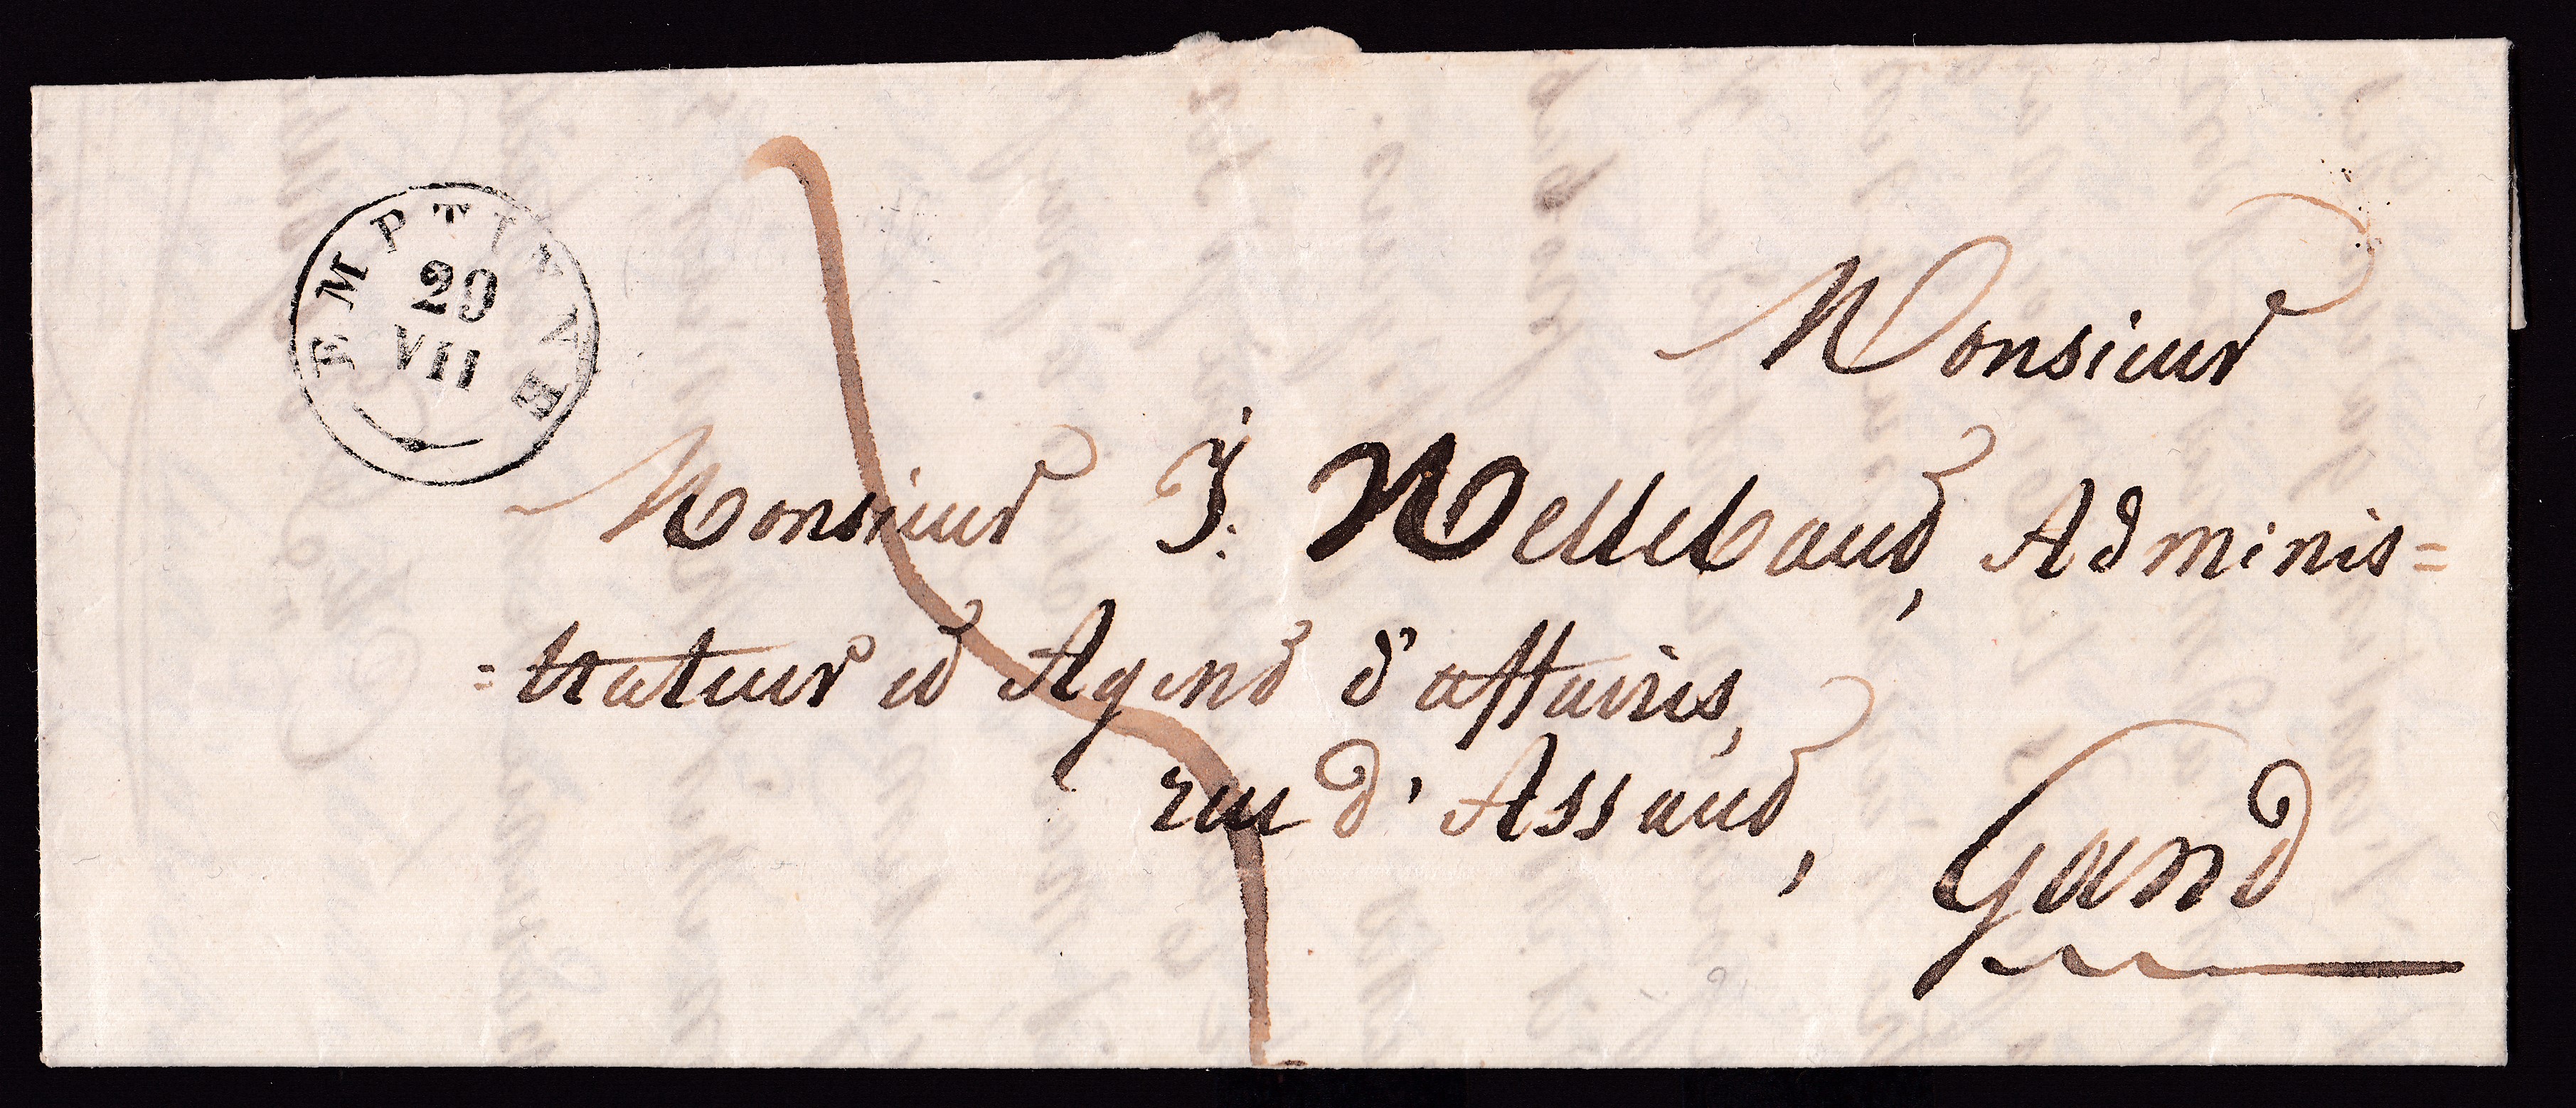 EMPTINNE
29
VII
Monsieur
Monsieur J. Mellebaud, Adminis=
=trateur et Agent d'affaires,
rue d'Assaud,
Gand